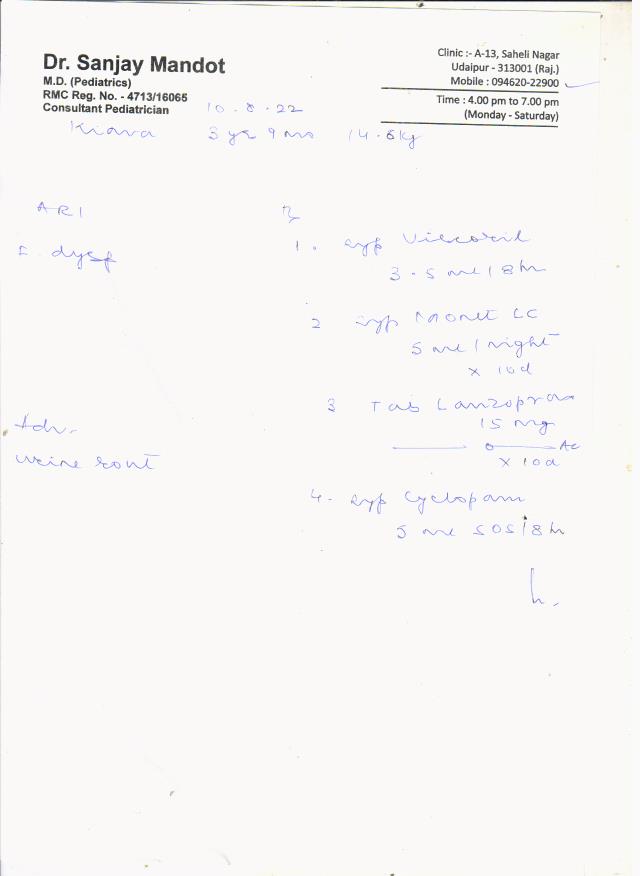 Dr. Sanjay Mandot
M.D. (Pediatrics)
RMC Reg. No. - 4713/16065
Consultant Pediatrician
Clinic :- A-13, Saheli Nagar
Udaipur - 313001 (Raj.)
Mobile : 094620-22900
Time : 4.00 pm to 7.00 pm
(Monday - Saturday)
10.8.22
Kiara 3 yr 9 mo 14.6 kg
ARI
dysp
Adv.
urine rout
Rx
1. syp Viscoril
3.5 ml / 8 hr
2 syp Monet LC
5 ml / night
x 10d
3 Tab Lanzopran
15 mg
o Ac
x 10d
4. syp Cyclopam
5 ml SOS / 8 h